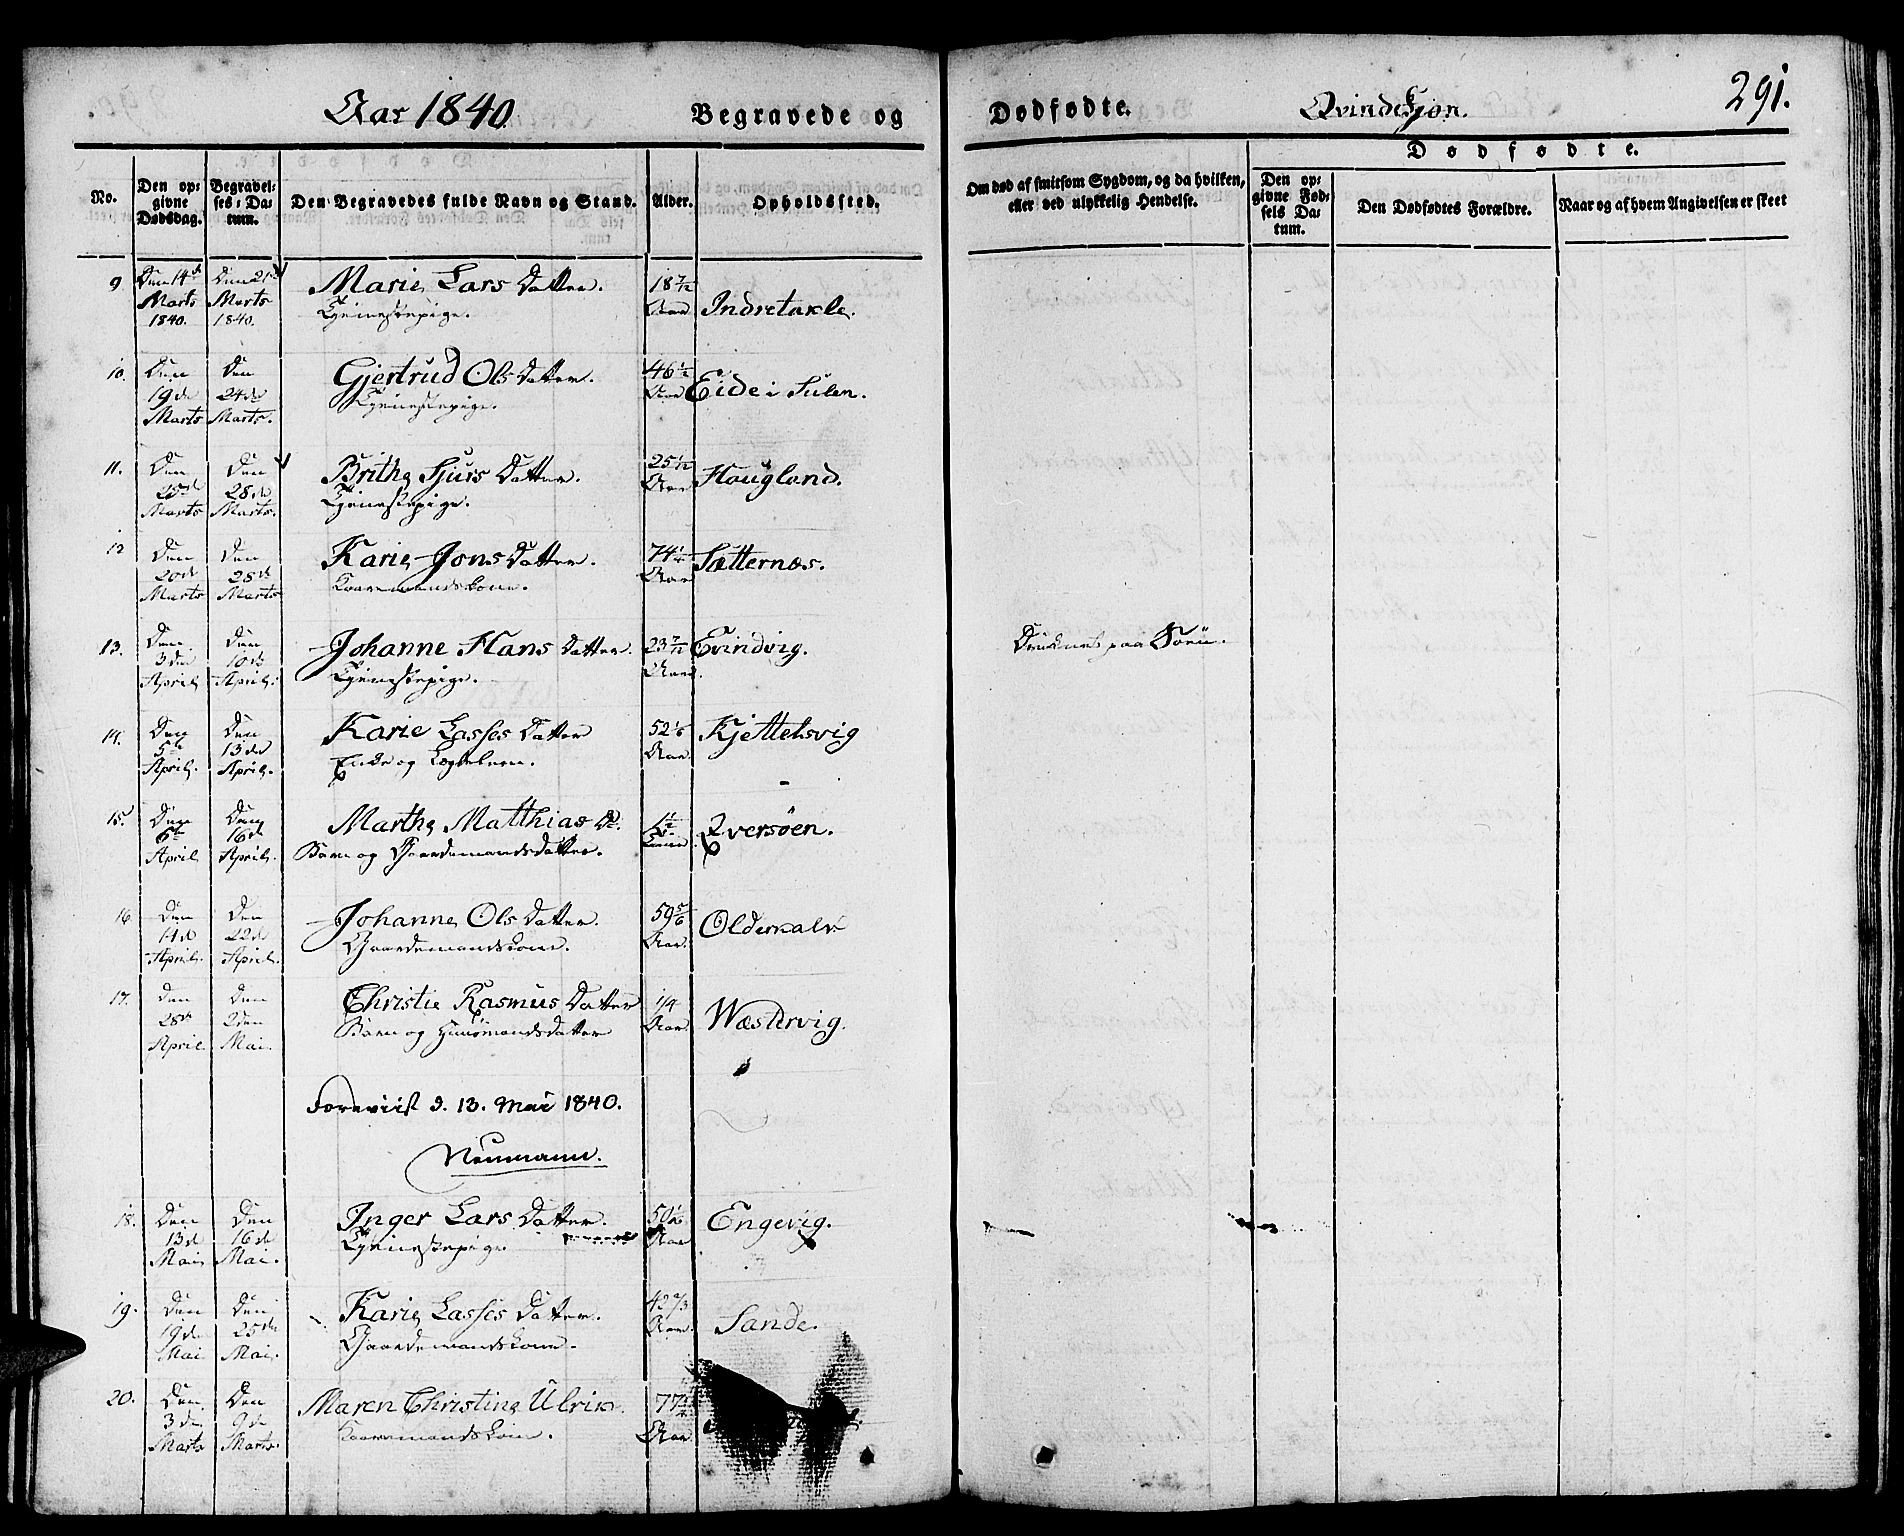 Aar 1840. Begravede og Dødfødte. Qvindekjøn. 291.
No.
Den opgivne Dødsdag.
Begravelses-Datum.
Den Begravedes fulde Navn og Stand.
Alder.
Opholdssted.
Om død af smitsom Sygdom, og da hvilken, eller ved ulykkelig Hendelse.
Dødfødte.
Den opgivne Fødsels Datum.
Den Dødfødtes Forældre.
Naar og af hvem Angivelsen er skeet
9. Den 14de Den 21de Marie Lars Datter. 18 7/12
Marts Marts Tjenestepige. Aar Indretakle.
1840. 1840.
10. Den Den Gjertrud Ols Datter. 46 1/2
19de 24de Tjenestepige. Aar Eide i Sulen.
Marts Marts.
11. Den Den Brithe Sjurs Datter. 25 1/12
25de 28de Tjenestepige. Aar Haugland.
Marts Marts.
12 Den Den Karie Jons Datter. 74 1/4
20de 28de Kaarmandskone. Aar Sætternæs.
Marts Marts
13. Den Den Johanne Hans Datter. 23 7/12 Evindvig. Druknet paa Søen.
3den 10de Tjenestepige. Aar.
April April.
14. Den Den Karie Lasses Datter 52 1/6 Kjettelsvig
5te 13de Enke og Lægdslem. Aar
April. April.
15. Den Den Marthe Matthias D.
6te 16de Barn og Gaardemandsdatter. Iversøen.
April April.
16. Den Den Johanne Ols Datter. 59 5/6
14de 22de Gaardemandskone. Aar. Olderkalv
April. April.
17. Den Den Christie Rasmus Datter 1/4
28de 2den Barn og Huusmandsdatter Aar Wæstervig.
April Mai.
Foreviist d. 13. Mai 1840.
Neumann.
18. Den Den Inger Lars Datter. Engevig.
13de 16de Tjenestepige Aar
Mai Mai.
19. Den Den Karie Lasses Datter. 42 2/3
19de 25de Gaardemandskone. Aar. Sande.
Mai Mai.
20. Den Den Maren Christine Ulrik.
3de 9de Kaarmandskone. Aar
Marts Marts.